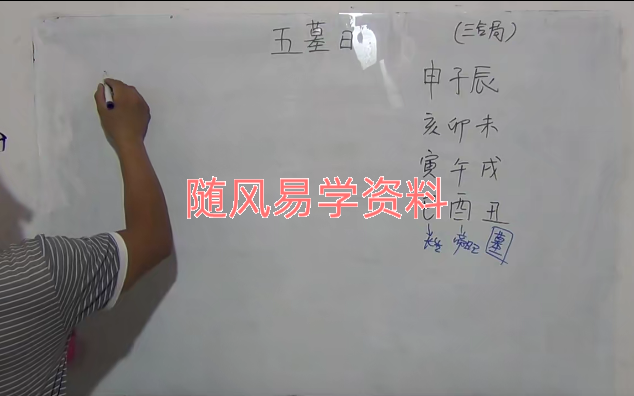 五墓日
(三合局)
申子辰
亥卯未
寅午戌
随风易学资料
巳酉丑
长生 帝旺 墓